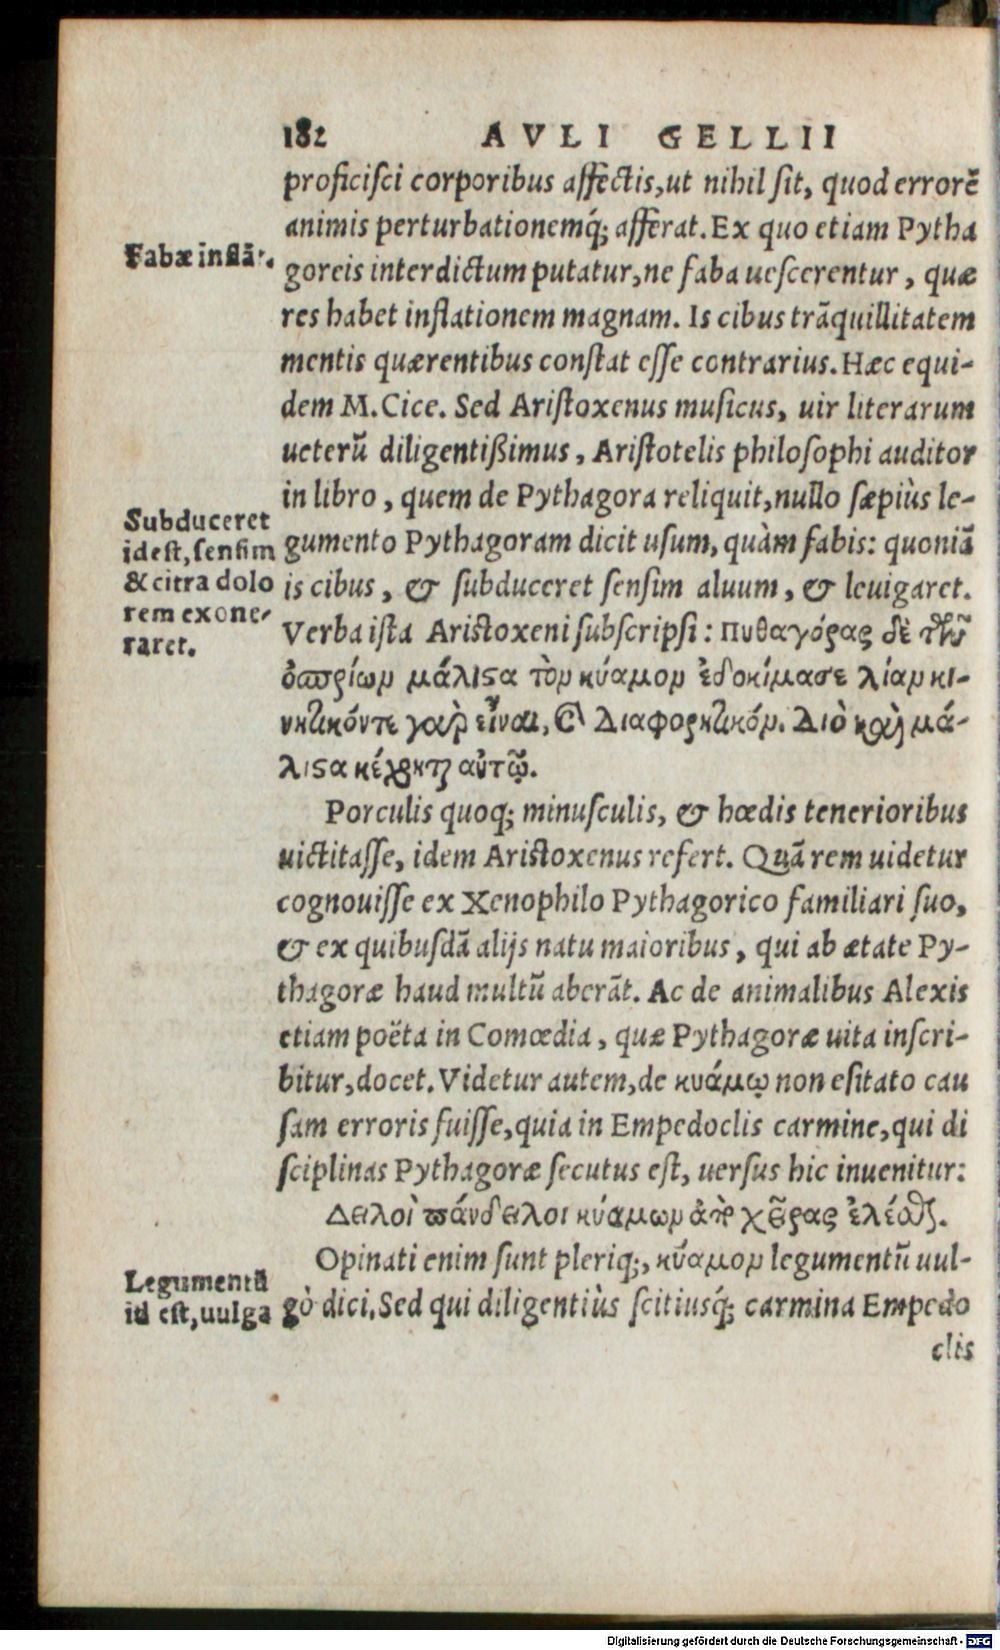 182 AVLI GELLII
proficisci corporibus affectis, ut nihil sit, quod errorē
animis perturbationemq́; afferat. Ex quo etiam Pytha
Fabæ inflāt.
goreis interdictum putatur, ne faba uescerentur, quæ
res habet inflationem magnam. Is cibus trāquillitatem
mentis quærentibus constat esse contrarius. Hæc equi-
dem M. Cice. Sed Aristoxenus musicus, uir literarum
ueterū diligentißimus, Aristotelis philosophi auditor
in libro, quem de Pythagora reliquit, nullo sæpiùs le-
Subduceret
idest, sensim
& citra dolo
rem exone-
raret.
gumento Pythagoram dicit usum, quàm fabis: quoniā
is cibus, & subduceret sensim aluum, & leuigaret.
Verba ista Aristoxeni subscripsi: Πυθαγόρας δὲ τῶν
ὀσπρίων μάλιστα τὸν κύαμον ἐδοκίμασε λίαν κι-
νητικόντε γαρ εἶναι, καὶ Διαφορητικόν. Διὸ καὶ μά-
λιστα κέχρηται αὐτῷ.
Porculis quoq; minusculis, & hœdis tenerioribus
uictitasse, idem Aristoxenus refert. Quā rem uidetur
cognouisse ex Xenophilo Pythagorico familiari suo,
& ex quibusdā alijs natu maioribus, qui ab ætate Py-
thagoræ haud multū aberāt. Ac de animalibus Alexis
etiam poëta in Comœdia, quæ Pythagoræ uita inscri-
bitur, docet. Videtur autem, de κυάμῳ non esitato cau
sam erroris fuisse, quia in Empedoclis carmine, qui di
sciplinas Pythagoræ secutus est, uersus hic inuenitur:
Δειλοὶ πάνδειλοι κύαμων ἀπὸ χεῖρας ἐλέσθαι.
Opinati enim sunt pleriq;, κύαμον legumentū uul-
Legumentū
id est, uulga
gò dici. Sed qui diligentiùs scitiusq́; carmina Empedo
clis
Digitalisierung gefördert durch die Deutsche Forschungsgemeinschaft - DFG